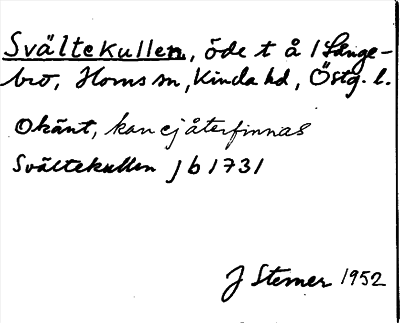 Svältekullen, öde t å / Långe-
bro, Horns sn, Kinda hd, Östg. l.
Okänt, kan ej återfinnas
Svältekullen jb 1731
J Sterner 1952